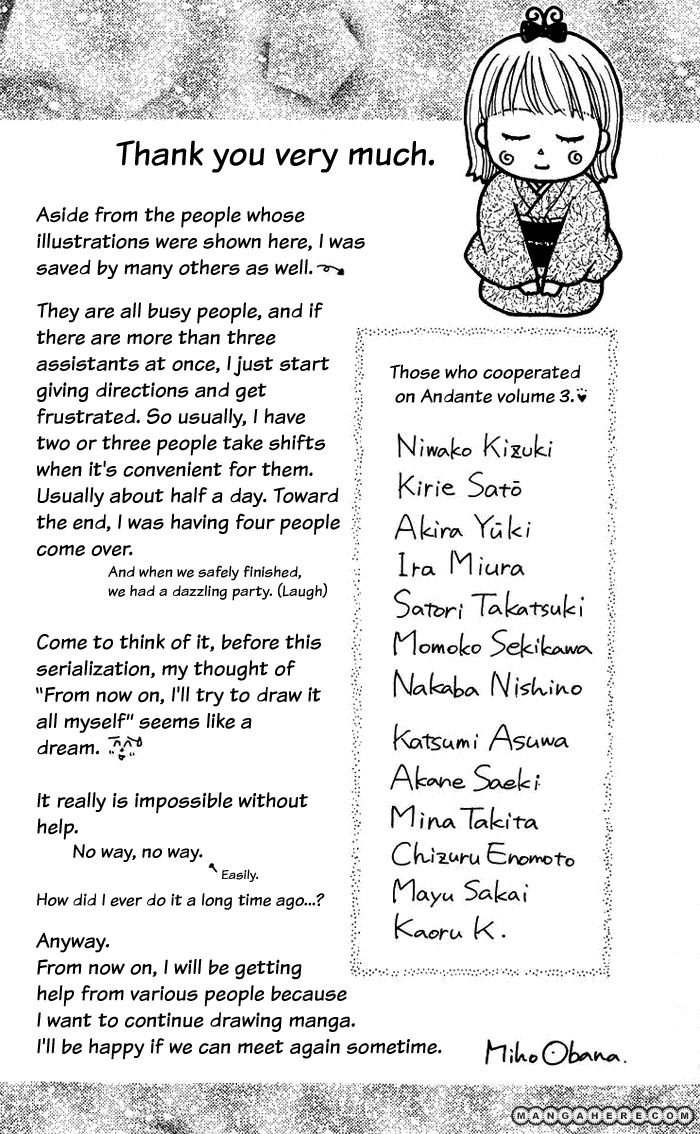 Thank you very much.
Aside from the people whose
illustrations were shown here, I was
saved by many others as well.
They are all busy people, and if
there are more than three
assistants at once, I just start
giving directions and get
frustrated. So usually, I have
two or three people take shifts
when it's convenient for them.
Usually about half a day. Toward
the end, I was having four people
come over.
And when we safely finished,
we had a dazzling party. (Laugh)
Come to think of it, before this
serialization, my thought of
"From now on, I'll try to draw it
all myself" seems like a
dream.
It really is impossible without
help.
No way, no way.
Easily.
How did I ever do it a long time ago...?
Anyway.
From now on, I will be getting
help from various people because
I want to continue drawing manga.
I'll be happy if we can meet again sometime.
Those who cooperated
on Andante volume 3.
Niwako Kizuki
Kirie Satō
Akira Yūki
Ira Miura
Satori Takatsuki
Momoko Sekikawa
Nakaba Nishino
Katsumi Asuwa
Akane Saeki
Mina Takita
Chizuru Enomoto
Mayu Sakai
Kaoru K.
Miho Obana.
MANGAHERE.COM